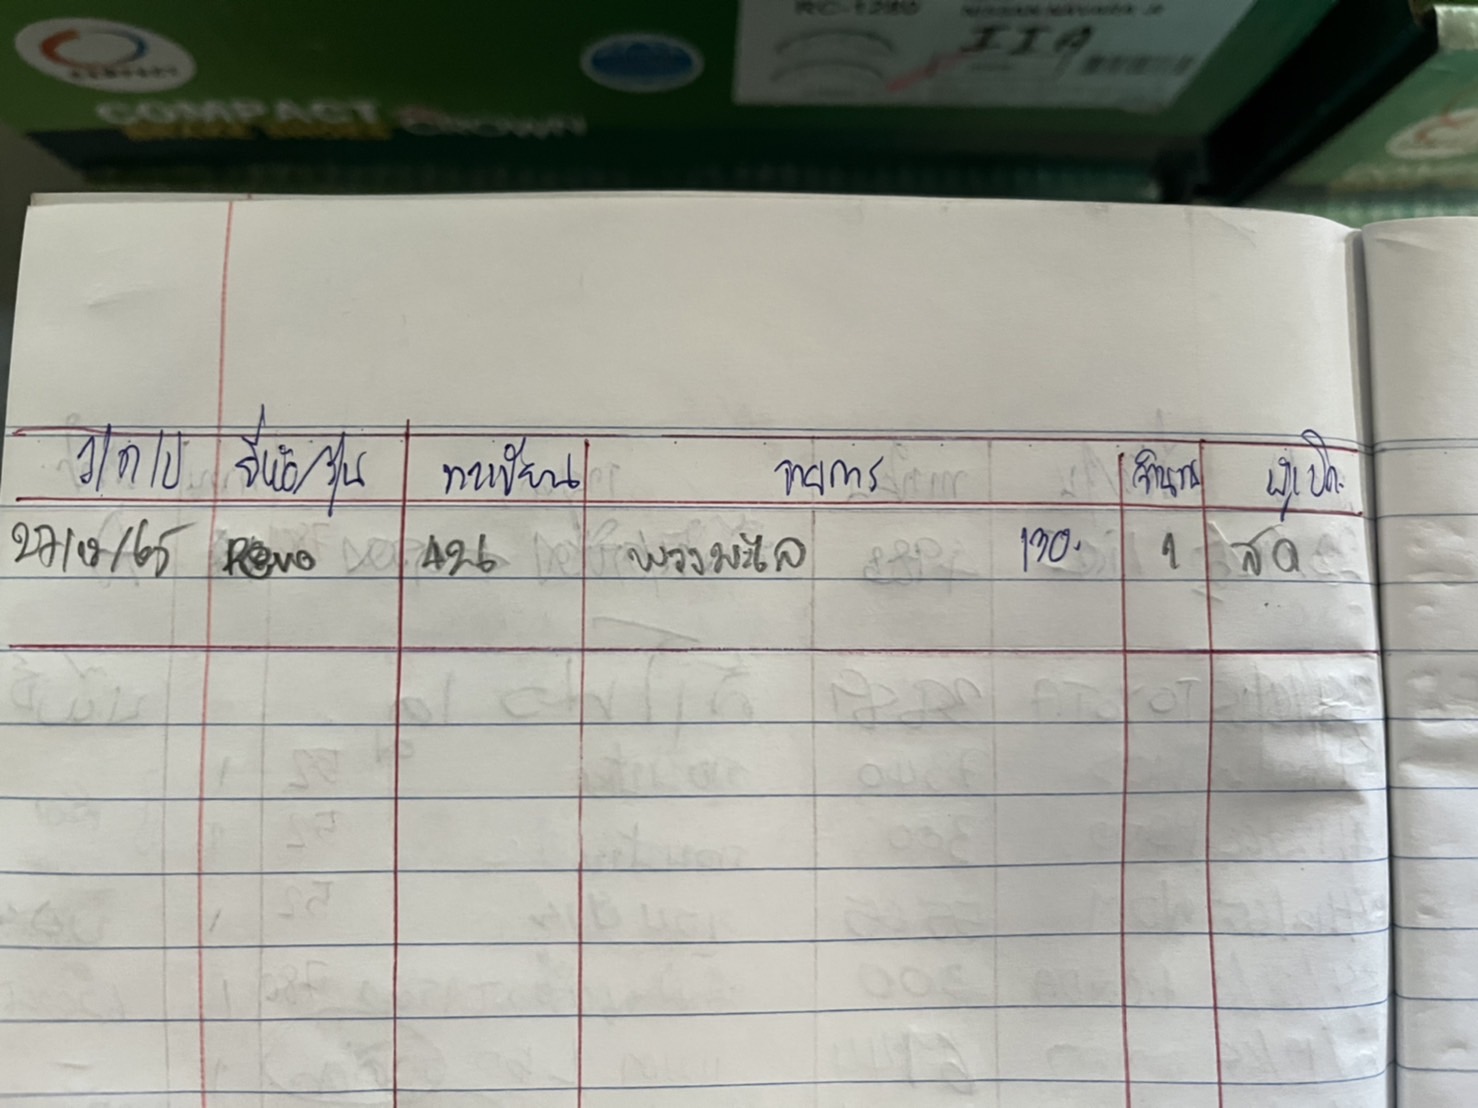 RC-1280 NISSAN NAVARA
IIA
COMPACT
BRAKE SHOES CROWN
ว/ด/ป ยี่ห้อ/รุ่น ทะเบียน รายการ จำนวน ผู้เบิก
27/12/65 Revo 426 พวงมะไล 130. 1 สด